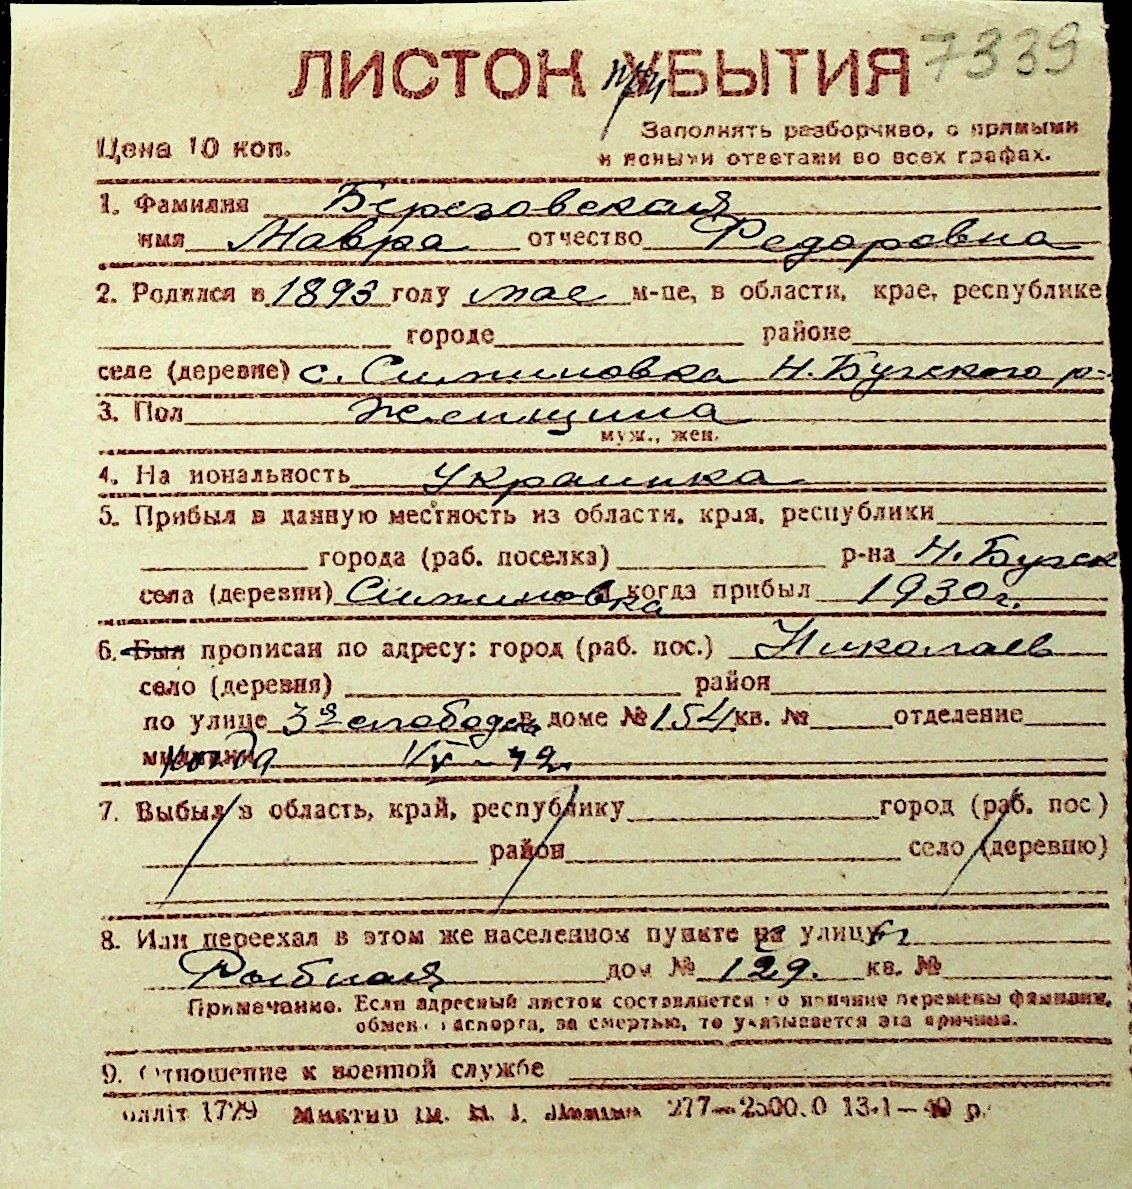 7339
ЛИСТОК при УБЫТИЯ
Цена 10 коп.
Заполнять разборчиво, с прямыми
и ясными ответами во всех графах.
1. Фамилия Березовская
имя Мавра отчество Федоровна
2. Родился в 1893 году мае м-це, в области, крае, республике
городе районе
селе (деревне) с. Ситиновка Н. Бугского р-
3. Пол Женщина
муж., жен.
4. На иональность Украинка
5. Прибыл в данную местность из области, края, республики
города (раб. поселка) р-на Н. Бугск
села (деревни) Ситиновка и когда прибыл 1930 г.
6. Был прописан по адресу: город (раб. пос.) Николаев
село (деревня) район
по улице 3я слободск в доме № 154 кв. № отделение
милиции когда IV - 42.
7. Выбыл в область, край, республику город (раб. пос)
район село (деревню)
8. Или переехал в этом же населенном пункте на улицу
Рыбная дом № 129. кв. №
Примечание. Если адресный листок составляется по причине перемены фамилии,
обмен паспорта, за смертью, то указывается эта причина.
9. Отношение к военной службе
1729 277—2500.0 13.1—40 р.